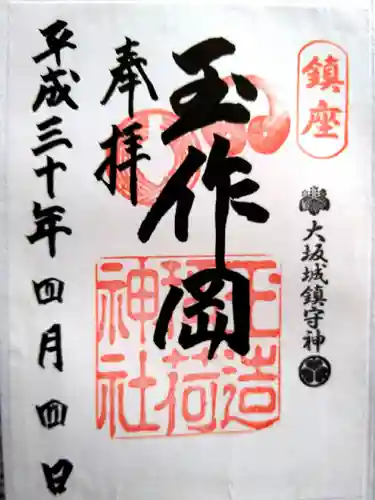 鎮座
大坂城鎮守神
玉作岡
玉造
稲荷
神社
奉拝
平成三十年四月四日